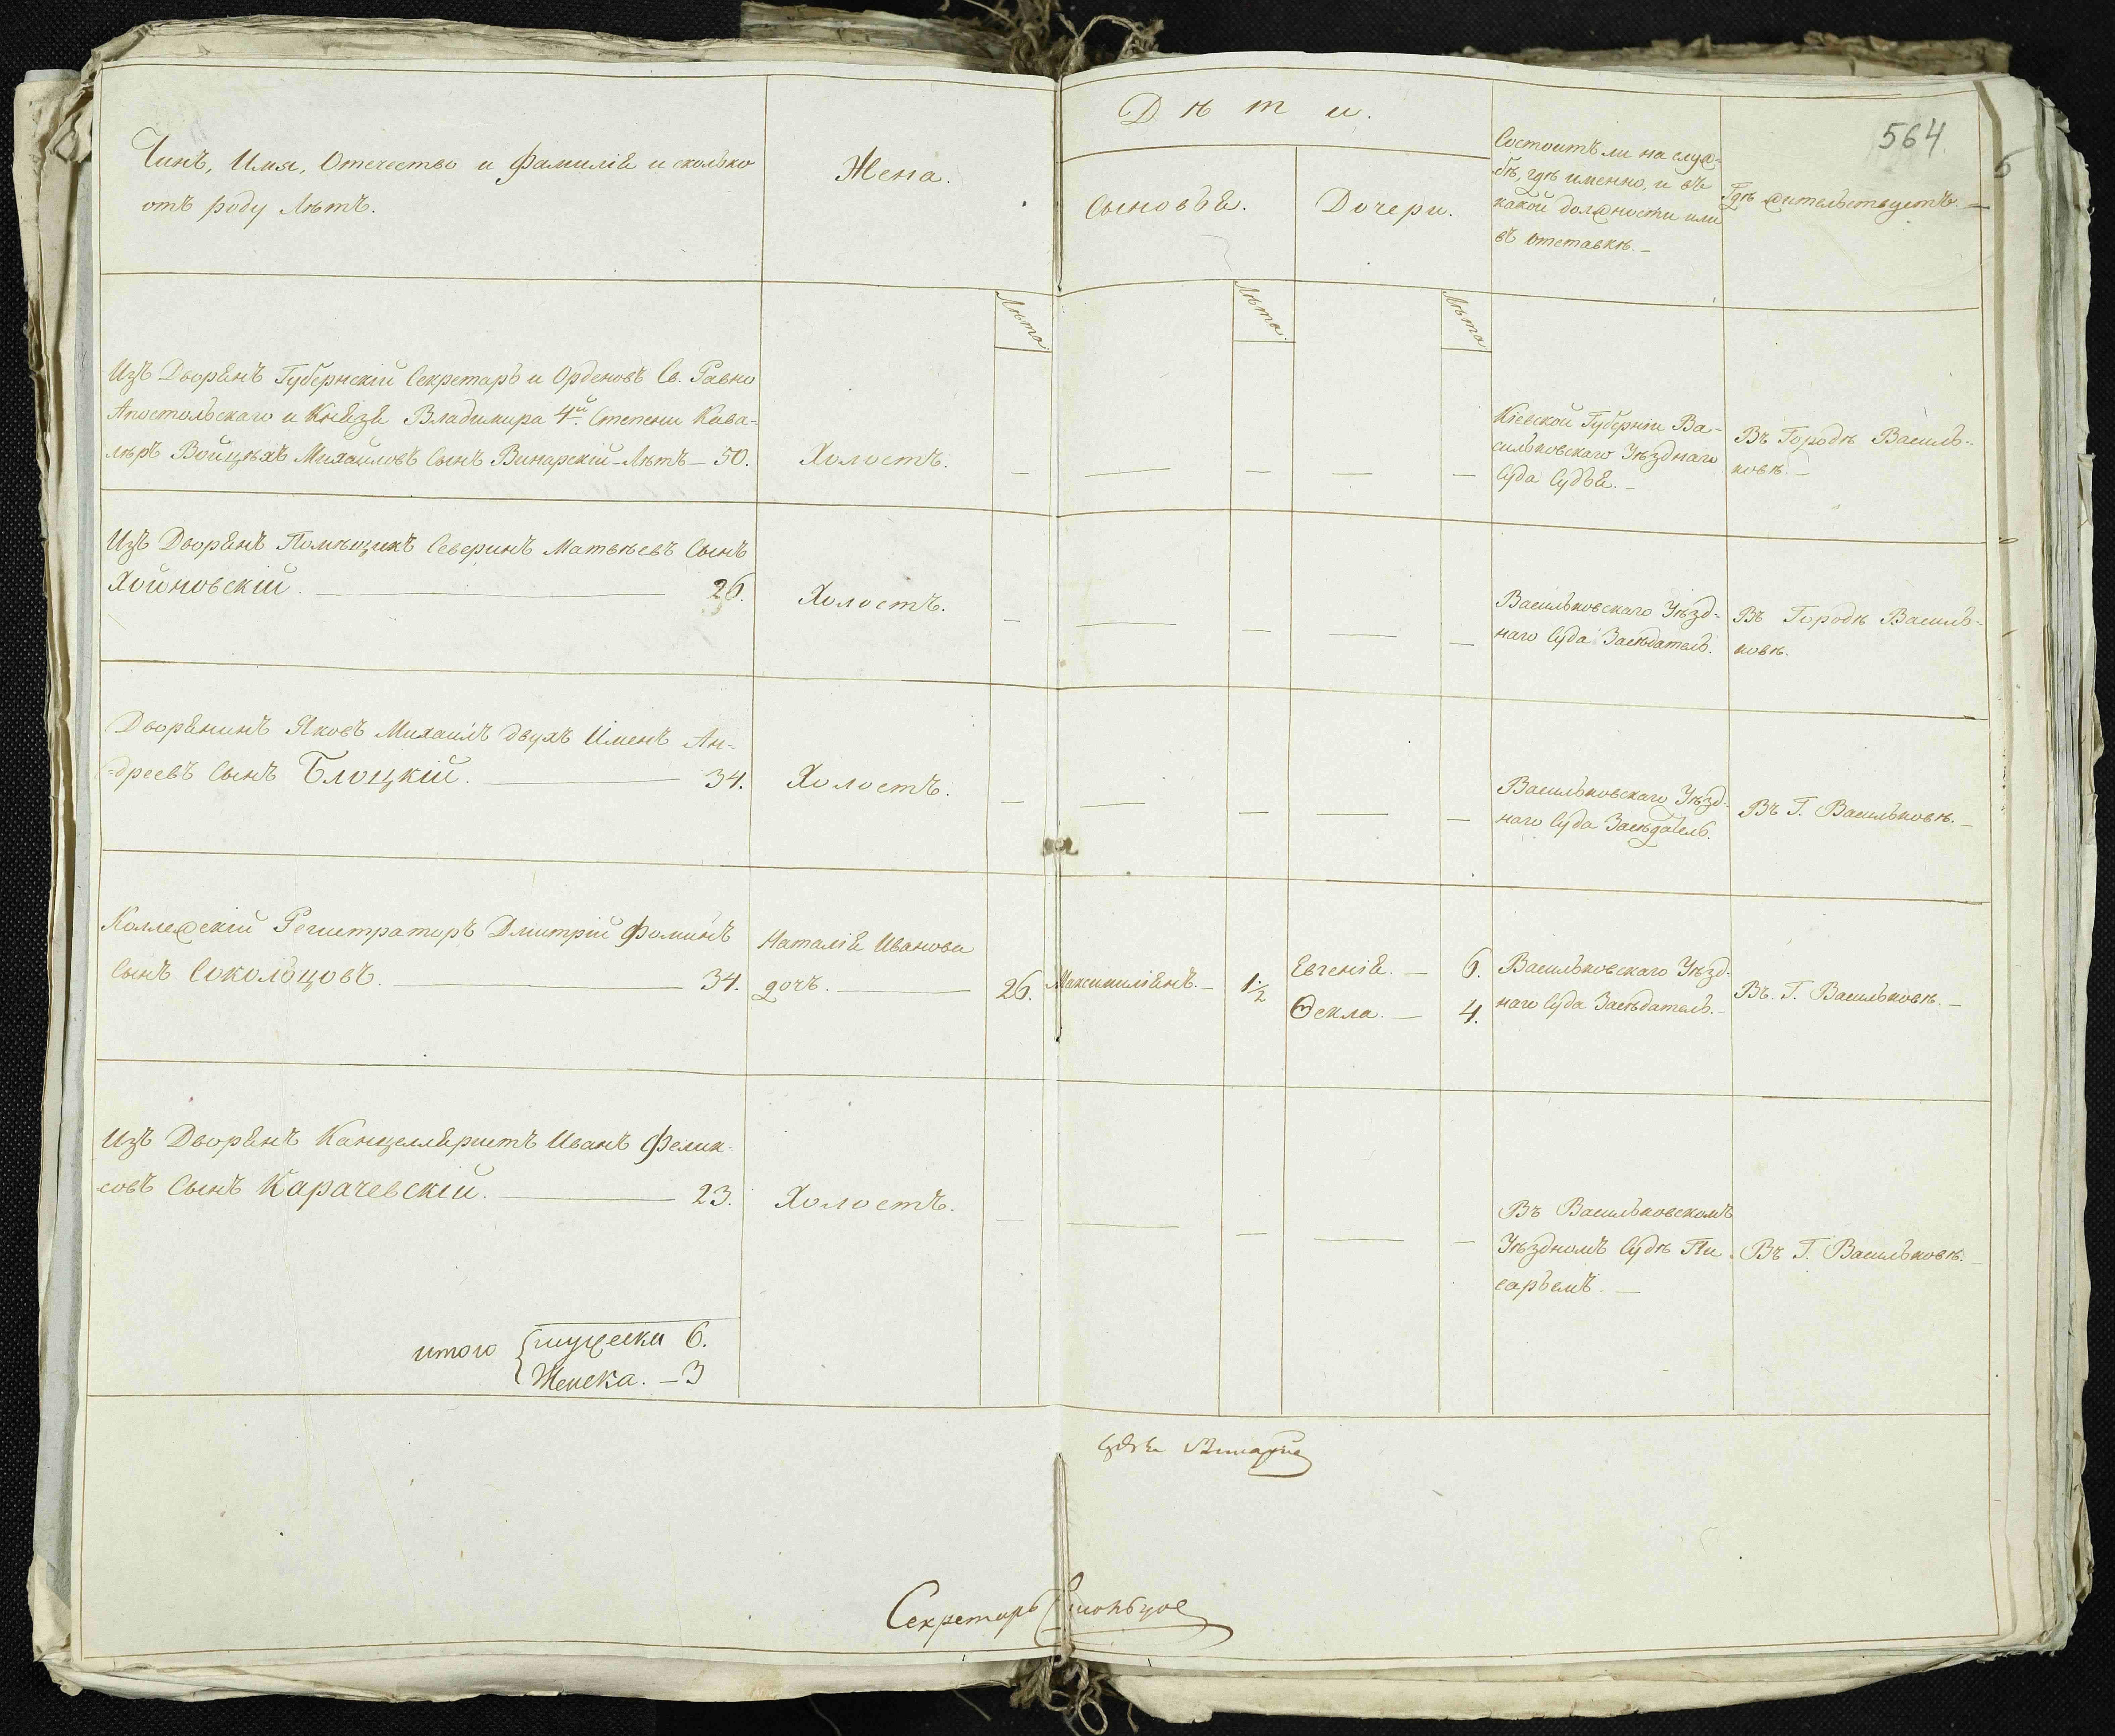 564
Дѣти.
Чинъ, Имя, Отечество и Фамилія и сколько
отъ роду Лѣтъ.
Жена.
Сыновья.
Дочери.
Состоитъ ли на служ-
бѣ, гдѣ именно, и въ
какой должности или
въ отставкѣ.–
Гдѣ жительствуетъ.–
Лѣта
Лѣта
Лѣта
Изъ Дворянъ Губернскій Секретарь и Орденовъ Св. Равно
Апостольскаго и Князя Владимира 4й Степени Кава-
лѣръ Войцѣхъ Михайловъ Сынъ Винарскій–Лѣтъ–50.
Холостъ.
— — — — —
Кіевской Губерніи Ва-
сильковскаго Уѣзднаго
Суда Судья.–
Въ Городѣ Василь-
ковѣ.–
Изъ Дворянъ Помѣщикъ Северинъ Матвѣевъ Сынъ
Хойновскій. — 26.
Холостъ.
— — — — —
Васильковскаго Уѣзд-
наго Суда Засѣдатель.
Въ Городѣ Василь-
ковѣ.
Дворянинъ Яковъ Михаилъ двухъ Именъ Ан-
дреевъ Сынъ Блоцкій. — 34.
Холостъ.
— — — — —
Васильковскаго Уѣзд-
наго Суда Засѣдатель.
Въ Г. Васильковѣ.–
Коллежскій Регистраторъ Дмитрій Фоминъ
Сынъ Соколбцовъ. — 34.
Наталія Иванова
дочь. — 26.
Максимиліянъ.– 1½
Евгенія. — 6.
Ѳекла. — 4.
Васильковскаго Уѣзд-
наго Суда Засѣдатель.–
Въ. Г. Васильковѣ.–
Изъ Дворянъ Канцелляристъ Иванъ Фелик-
совъ Сынъ Карачевскій. — 23.
Холостъ.
— — — — —
Въ Васильковскомъ
Уѣздномъ Судѣ Пи-
саръемъ.—
Въ Г. Васильковѣ.–
итого мужеска 6.
Женска.–3
Судья
Секретарь